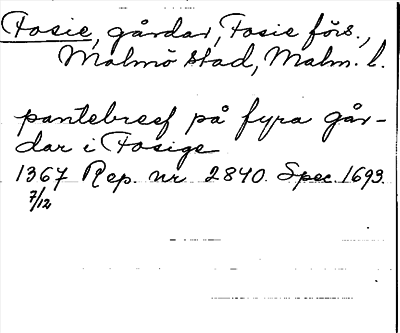 Fosie, gårdar, Fosie förs.,
Malmö stad, Malm. l.
pantebref på fyra går-
dar i Fosige
1367 Rep. nr 2840. Spec. 1693.
7/12